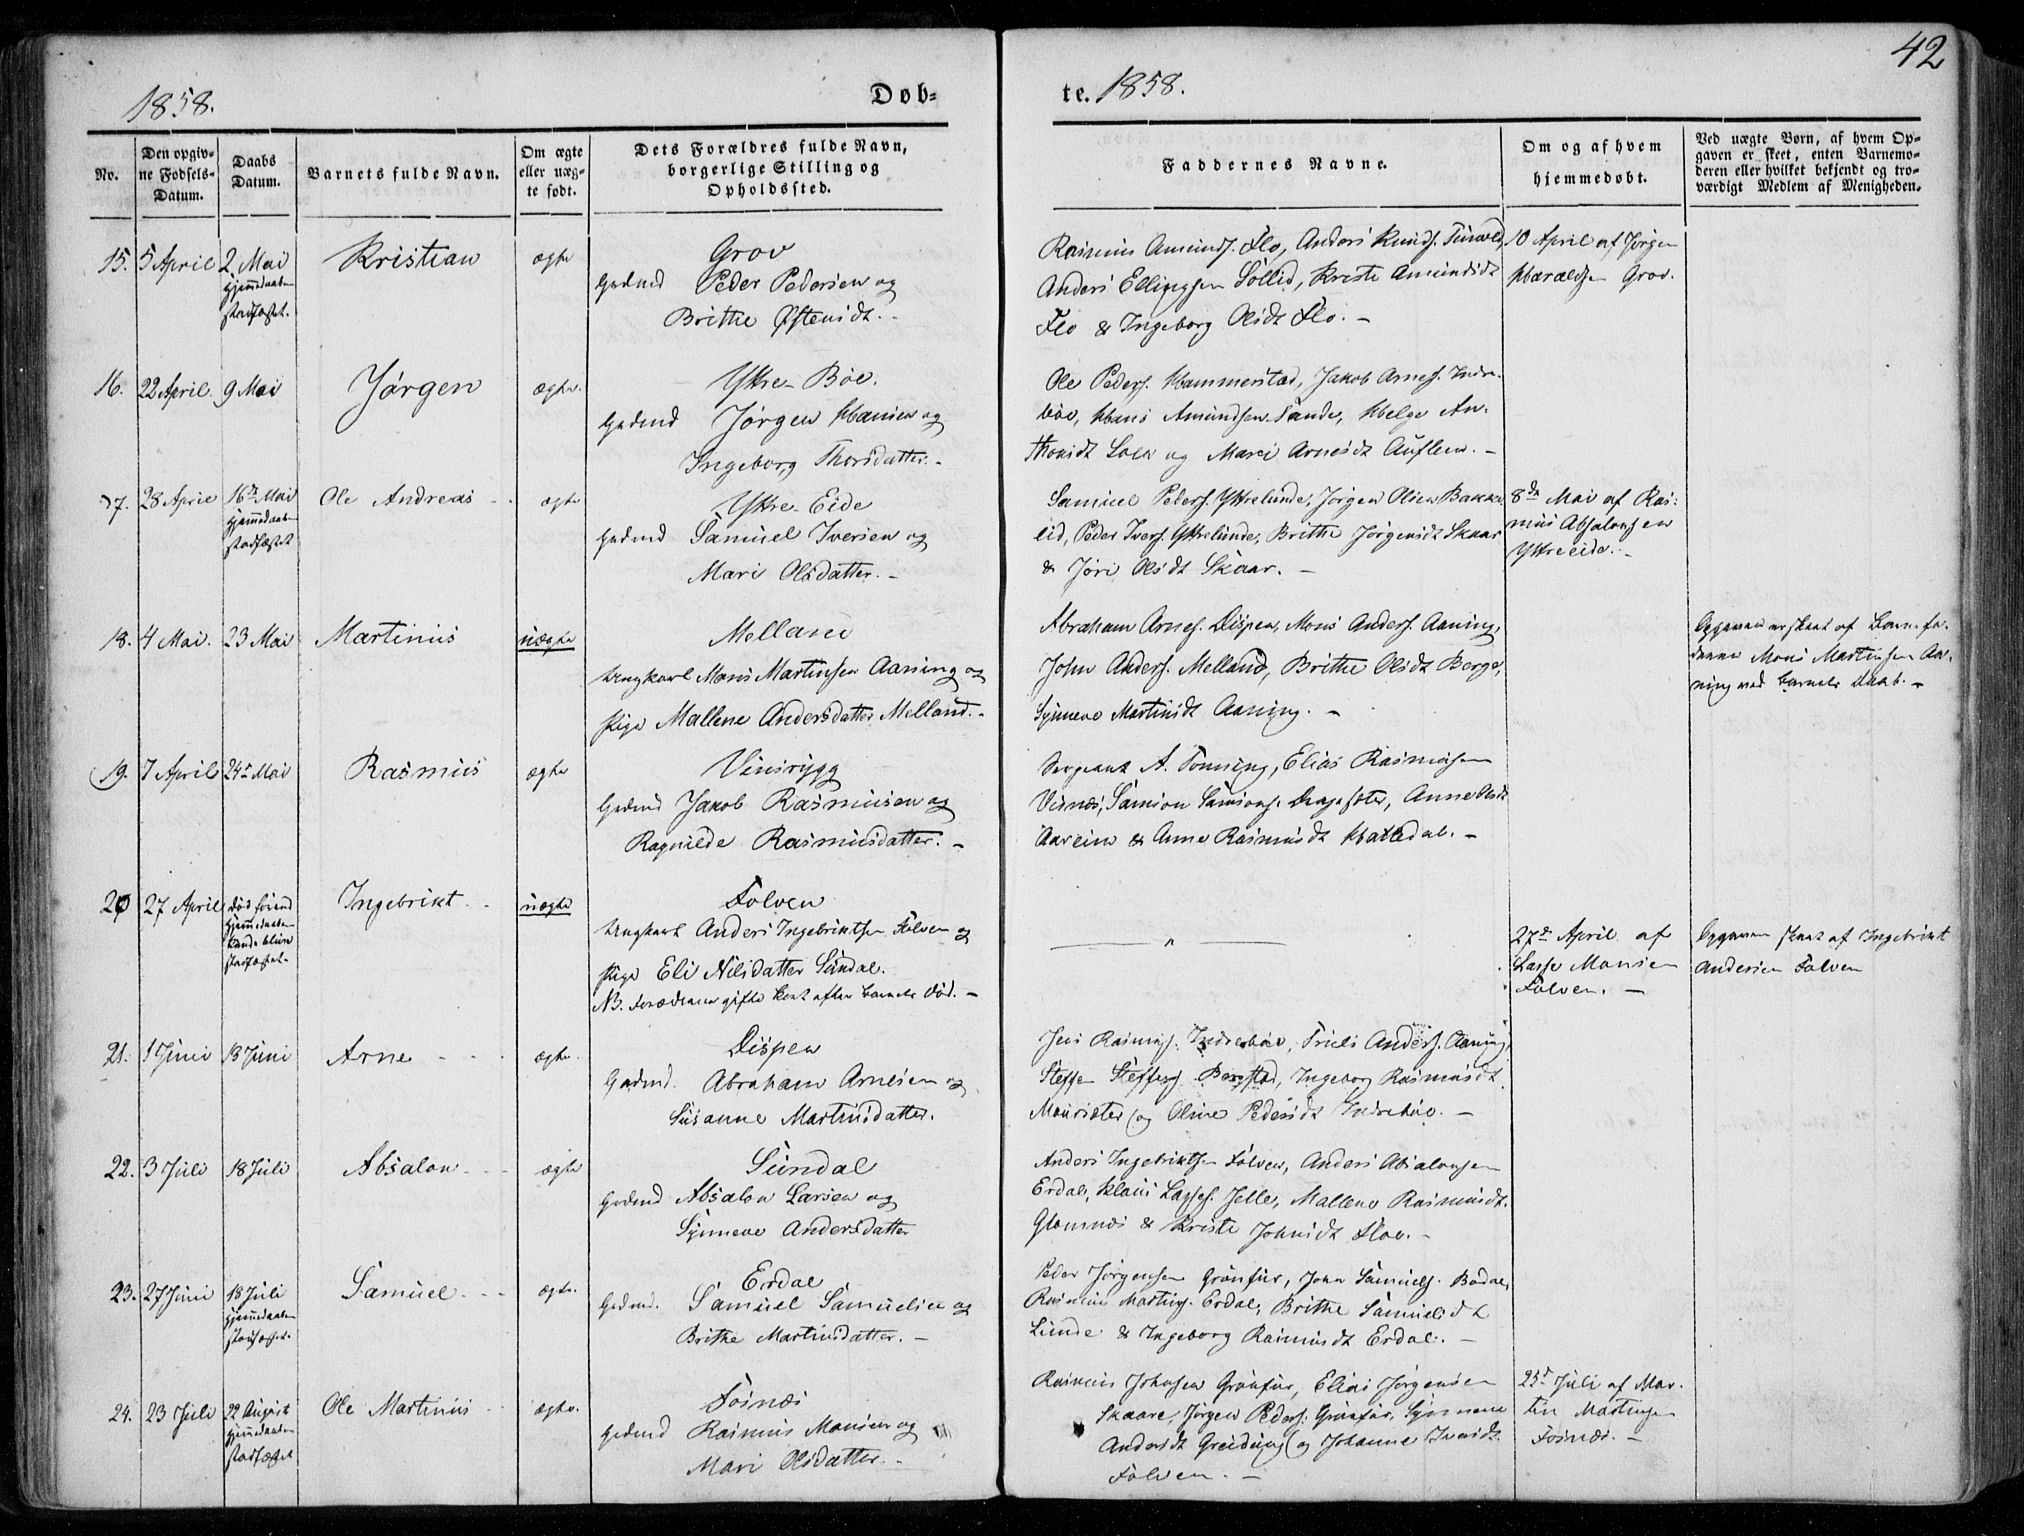 42
1858.
Døb=
te. 1858.
No.
Den opgiv-
ne Fødsels-
Datum.
Daabs
Datum.
Barnets fulde Navn.
Om ægte
eller uæg-
te født.
Dets Forældres fulde Navn,
borgerlige Stilling og
Opholdssted.
Faddernes Navne.
Om og af hvem
hjemmedøbt.
Ved uægte Børn, af hvem Op-
gaven er skeet, enten Barnemo-
deren eller hvilket bekjendt og tro-
værdigt Medlem af Menigheden.
15. 5 April 2. Mai
Hjemmedaaben
stadfæstet.
Kristian
ægte
Grov
Grdmd Peder Pedersen og
Brithe Østensdt. -
Rasmus Amunds. Flo, Anders Knuds.
Anders Ellingsen Sollid, Kriste Amundsdt
Flo & Ingeborg Olsdt Flo. -
10 April af Jørgen
Haraldsen Grov.
16. 22 April. 9 Mai
Jørgen
ægte.
Yttre Böe.
Grdmd Jørgen Hansen og
Ingeborg Thorsdatter. -
Ole Peders. Hammerstad, Jakob Arnes. Indre-
böe, Hans Amundsen Sande, Helge An-
thonsdt og Mari Arnesdt Auflem. -
17. 28 April 16de Mai
Hjemmedaaben
stadfæstet
Ole Andreas
ægte
Yttre Eide
Grdmd Samuel Iversen og
Mari Olsdatter. -
Samuel Peders. Yttrelunde, Jörgen Olsen Bakke
eid, Peder Ivers. Yttrelunde, Brithe Jörgensdt Skaar
& Jöri Olsdt Skaar. -
8de Mai af Ras-
mus Absalonsen
Yttreeide. -
18. 4 Mai. 23 Mai
Martinus
uægte
Melland
Ungkarl Mons Martinsen Aaning og
Pige Mallene Andersdatter Melland. -
Abraham Arnes. Dispen, Mons Anders. Aaning,
John Anders. Melland, Brithe Olsdt Berge,
Synneve Martinsdt Aaning. -
Opgaven er skeet af Barnefa-
deren Mons Martinsen Aa-
ning ved Barnets Daab. -
19. 7 April 24de Mai
Rasmus
ægte
Vinsrygg
Grdmd Jakob Rasmusen og
Ragnilde Rasmusdatter. -
Sergeant A. Tonning, Elias Rasmusen
Visnes, Samson Samsons. Dragesæter, Anne Olsdt
Aarheim & Anne Rasmusdt -
20 27 April död förend
Hjemmedaaben
kunde blive
stadfæstet.
Ingebrikt
uægte
Folven
Ungkarl Anders Ingebriktsen Folven og
Pige Eli Nilsdatter Sundal.
NB. Forældrene gifte kort efter Barnets Död. -
"
27de April af
Lasse Monsen
Folven. -
Opgaven skeet af Ingebrikt
Andersen Folven
21. 1 Juni 13 Juni
Arne
ægte.
Dispen
Grdmd. Abraham Arnesen og
Susanne Martinsdatter.
Jens Rasmus. Indreböe, Truels Anders. Aaning,
Steffen Steffens. Bergstad, Ingeborg Rasmusdt.
Maurseter og Oline Pedersdt Indreböe. -
22. 3 Juli 18 Juli
Absalon
ægte
Sundal
Grdmd Absalon Larsen og
Synneve Andersdatter
Anders Ingebriktsen Folven, Anders Absalonsen
Erdal, Klaus Lasses. Helle, Mallene Rasmusdt.
Glomnes & Kriste Johnsdt Floe. -
23. 27 Juni 18 Juli
Hjemmedaaben
stadfæstet.
Samuel
ægte.
Erdal
Grdmd. Samuel Samuelsen og
Brithe Martinsdatter. -
Peder Jörgensen Grönfur, John Samuels. Bödal,
Rasmus Martins. Erdal, Brithe Samuelsdt
Lunde & Ingeborg Rasmusdt Erdal. -
24. 23 Juli 22 August
Hjemmedaaben
stadfæstet
Ole Martinus
ægte.
Fosnes
Grdmd Rasmus Monsen og
Mari Olsdatter. -
Rasmus Johnsen Grönfur, Elias Jörgensen
Skaare, Jörgen Peders. Grönfur, Synneve
Andersdt Greidung og Johanne Iversdt.
Folven. -
25de Juli af Mar-
tin Martinsen
Fosnes. -